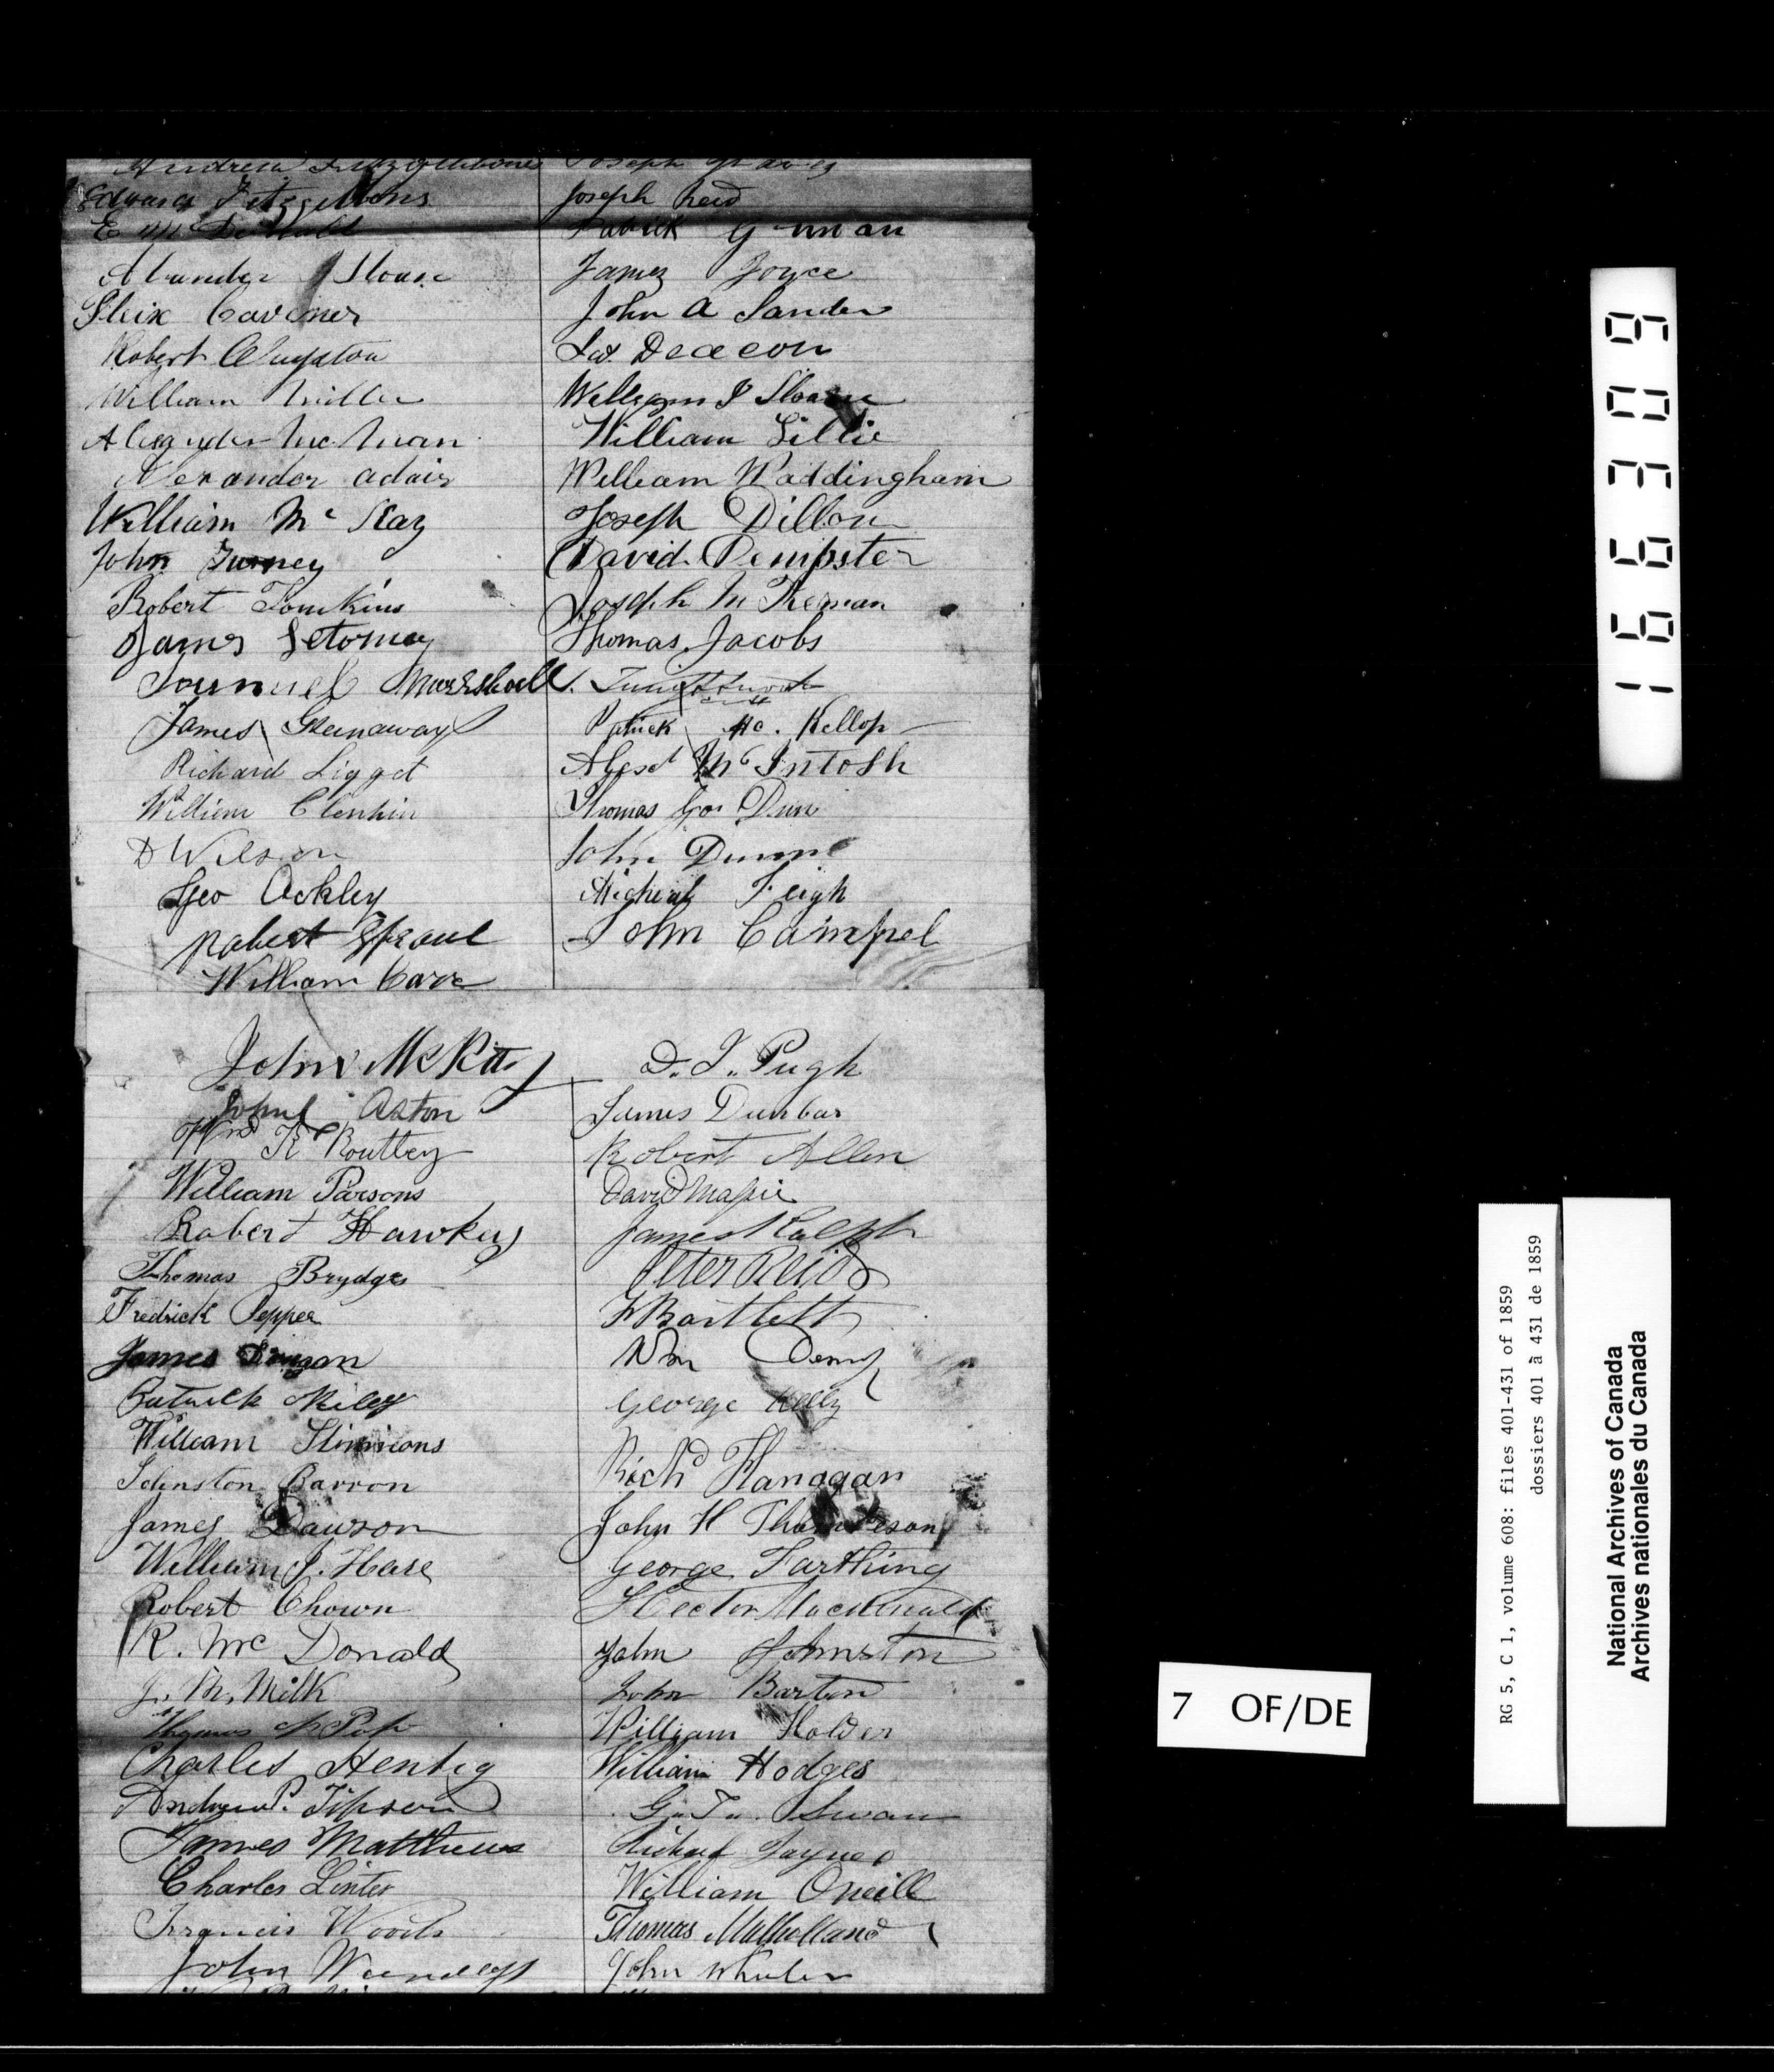 Andrew Fitzgibbons
Edward Fitzgibbons
E
Alexander Sloane
Cavener
Robert Clugston
William Miller
Alexander
Alexander adair
William Mc Kay
John Turney
Robert Tomkins
James
Samuel Marshall
James Greenaway
Richard Ligget
William Clenkin
D Wilson
Geo Ackley
Robert Sproul
William Carr
Joseph Graves
Joseph Reid
Patrick
James Joyce
John A Sander
Deacon
William J Sloane
William Lillie
William Waddingham
Joseph Dillon
David Dempster
Joseph
Thomas Jacobs
Patrick Mc. Kellop
Alexd McIntosh
Thomas Geo Dun
John Dunne
Micheal Feigh
John Campel
John McKitty
John Aston
Wm R Routley
William Parsons
Robert Hawkey
Thomas Brydges
Fredrick Pepper
James
Patrick Riley
William Simmons
Johnston Barron
James Dawson
William J. Hare
Robert Chown
R. Mc Donald
J. M. Milk
Thomas
Charles Hentig
Andrew P. Tipson
James Matthews
Charles Linter
Francis Woods
John
D. J. Pugh
James Dunbar
Robert Allen
David Massie
James Ralph
Peter Reid
Bartlett
Wm Deny
George Kelly
Richd Flanagan
John H Thompson
George Farthing
Hector MacDonald
John Johnston
John Barton
William Holder
William Hodges
G. T. Swan
Richard Jaynes
William Oneill
Thomas Mulholland
John Wheeler
166309
7 OF/DE
RG 5, C 1, volume 608: files 401-431 of 1859
dossiers 401 à 431 de 1859
National Archives of Canada
Archives nationales du Canada